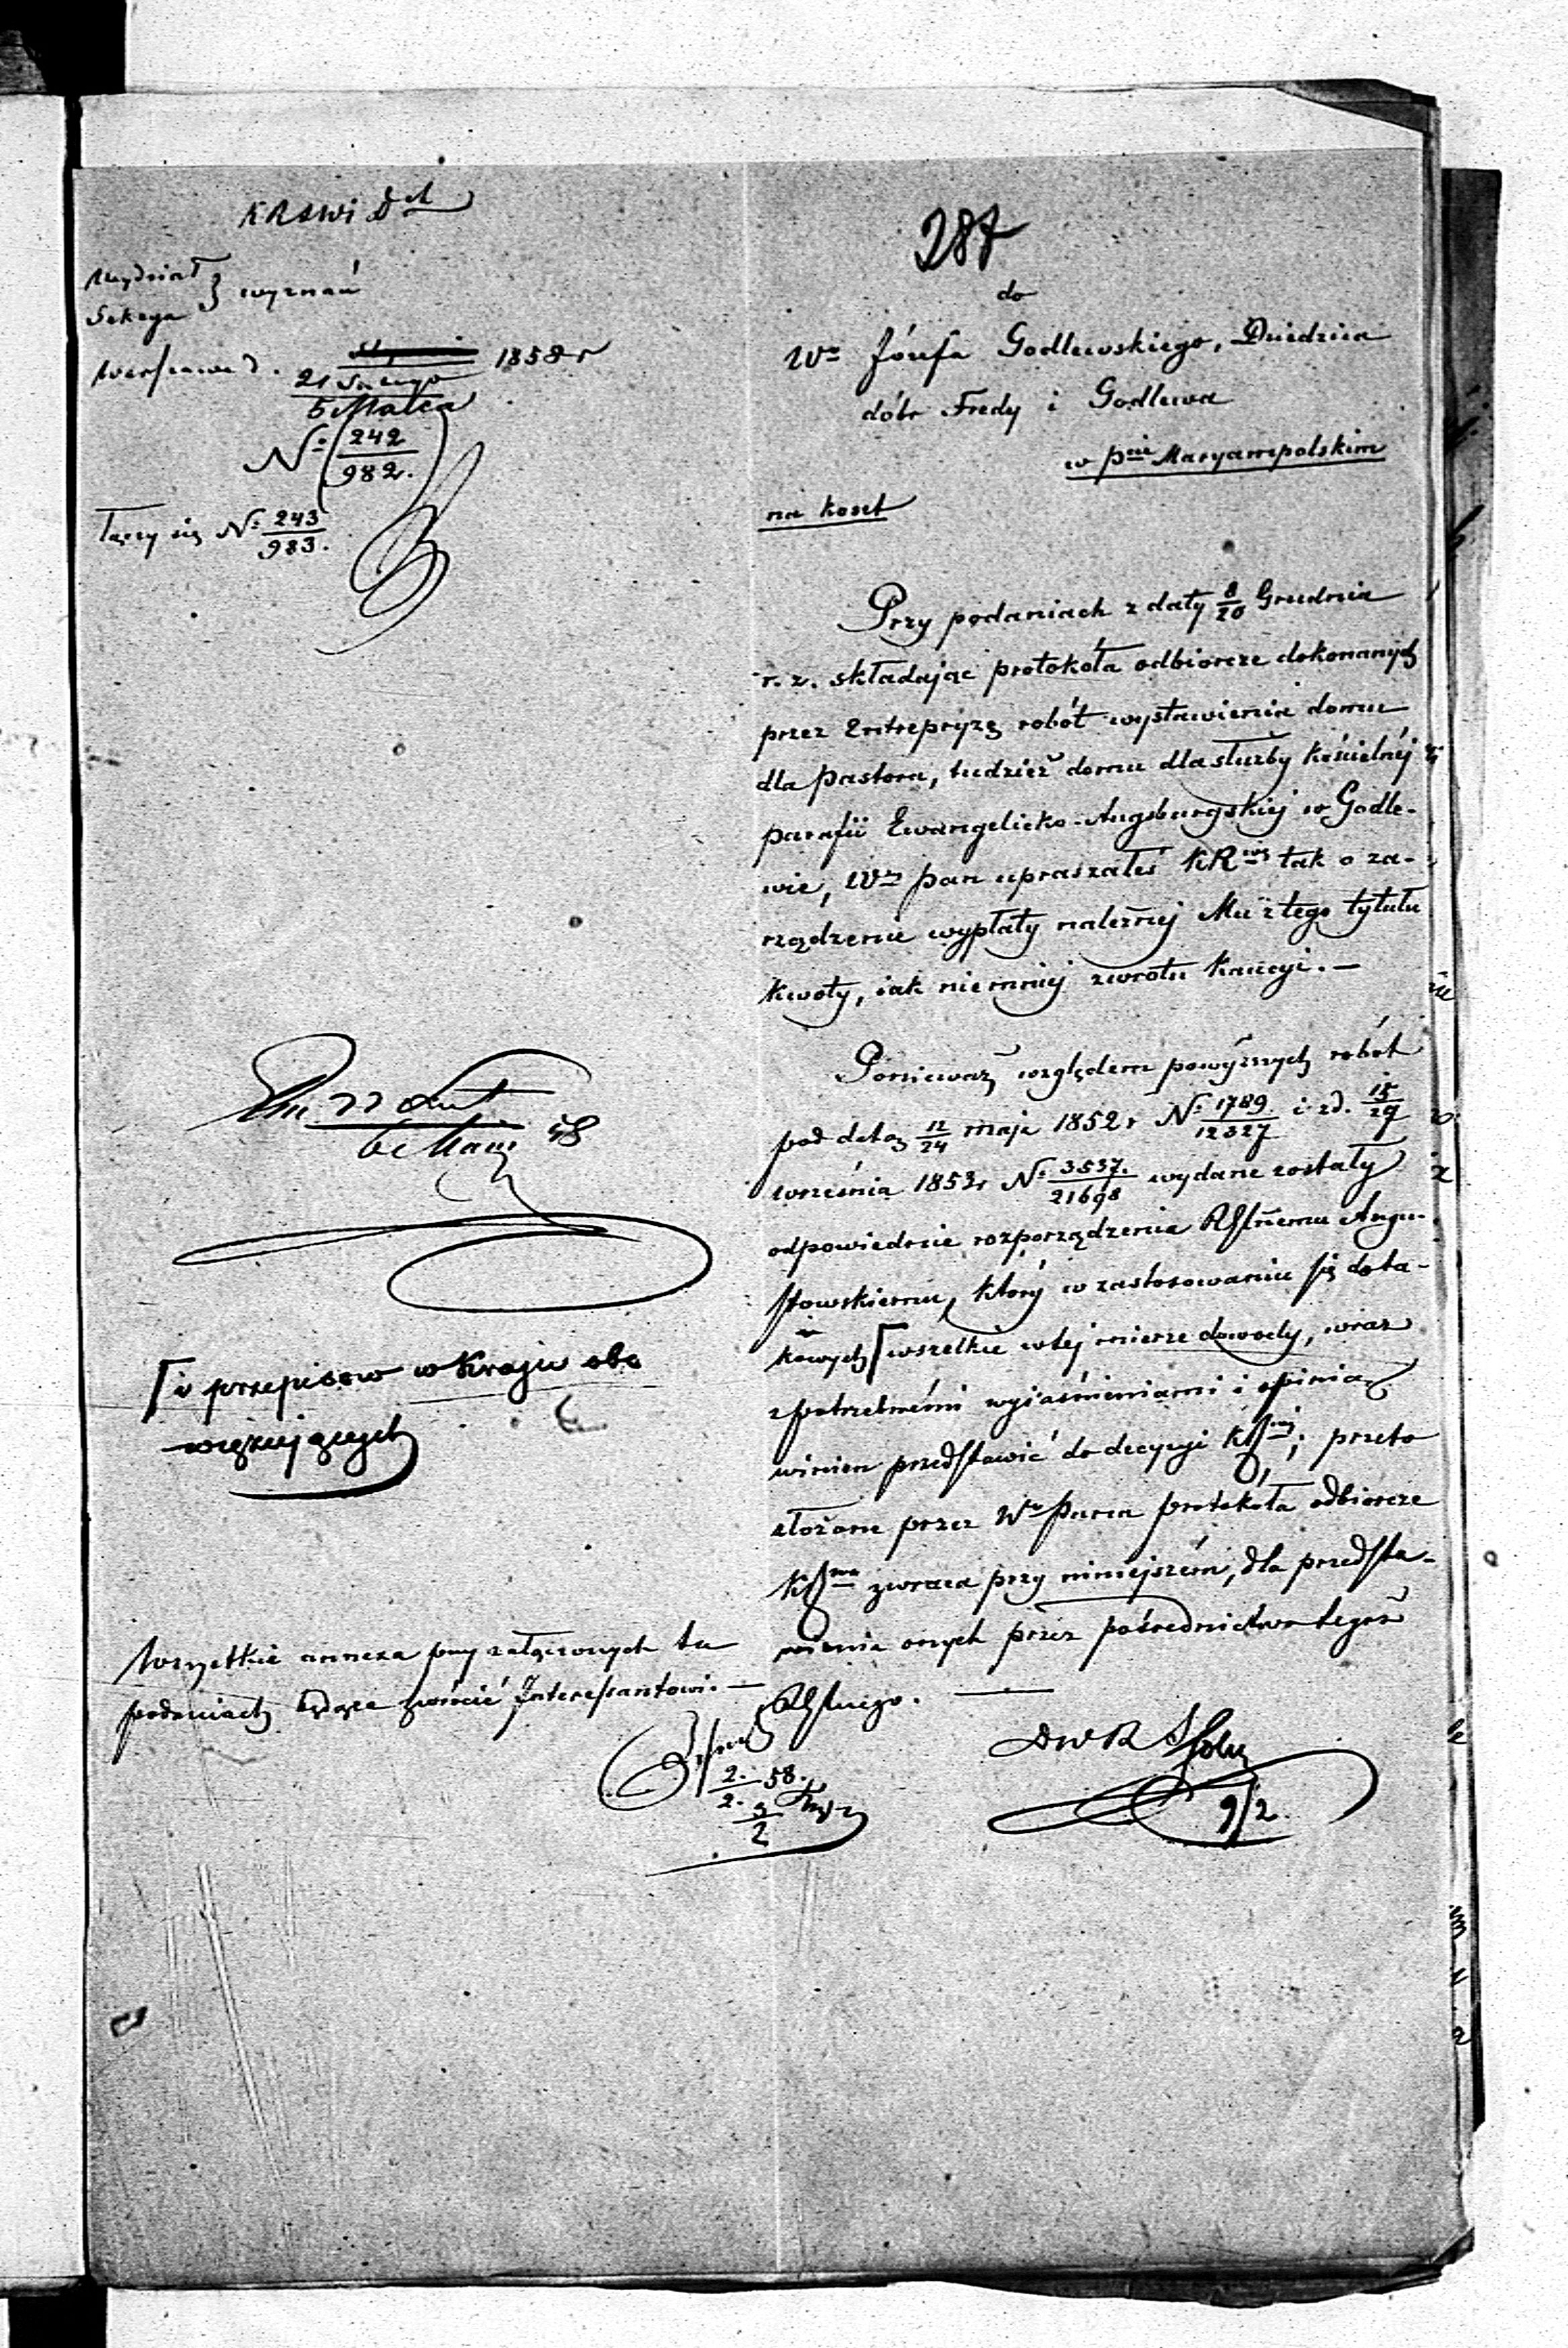 KRSWi D
Wydział
Sekcya } wyznań
Warszawa d. 21 Lutego 1858 r
5 Marca
N: 242
982.
Łączy się N: 243
983.
287
do
Wo Józefa Godlewskiego, Dziedzica
dóbr Fredy i Godlewa
w pcie Maryampolskim
na koszt
Przy podaniach z daty 8/20 Grudnia
r. z. składając protokóła odbiorcze dokonanych
przez Entrepryzę robót wystawienia domu
dla Pastora, tudzież domu dla służby kościelnéj
parafii Ewangelicko-Augsburgskiej w Godle-
wie, Wny Pan upraszałeś KR tak o za-
rządzenie wypłaty należnej Mu z tego tytułu
kwoty, iak niemniej zwrotu kaucyi. —
Ponieważ względem powyższych robót
pod datą 12/24 maja 1852 r N: 1789/12327 i z d. 15/27
września 1853 r N: 3537./21698 wydane zostały
odpowiednie rozporządzenia Augu-
stowskiemu, który w zastosowaniu się do ta-
kowych ⌈ wszelkie w tej mierze dowody, wraz
z potrzebnémi wyiaśnieniami i opinią
winien przedstawić do decyzyi; przeto
złożone przez Wo Pana protokóła odbiorcze
zwraca przy niniejszém, dla przedsta-
wienia onych przez pośrednictwo tegoż
58
⌈ i przepisów w Kraju obo
więzujących
Wszystkie annexa przy załączonych tu
podaniach będące zwrócić Interessantowi. —
2. 58.
2.
9/2.